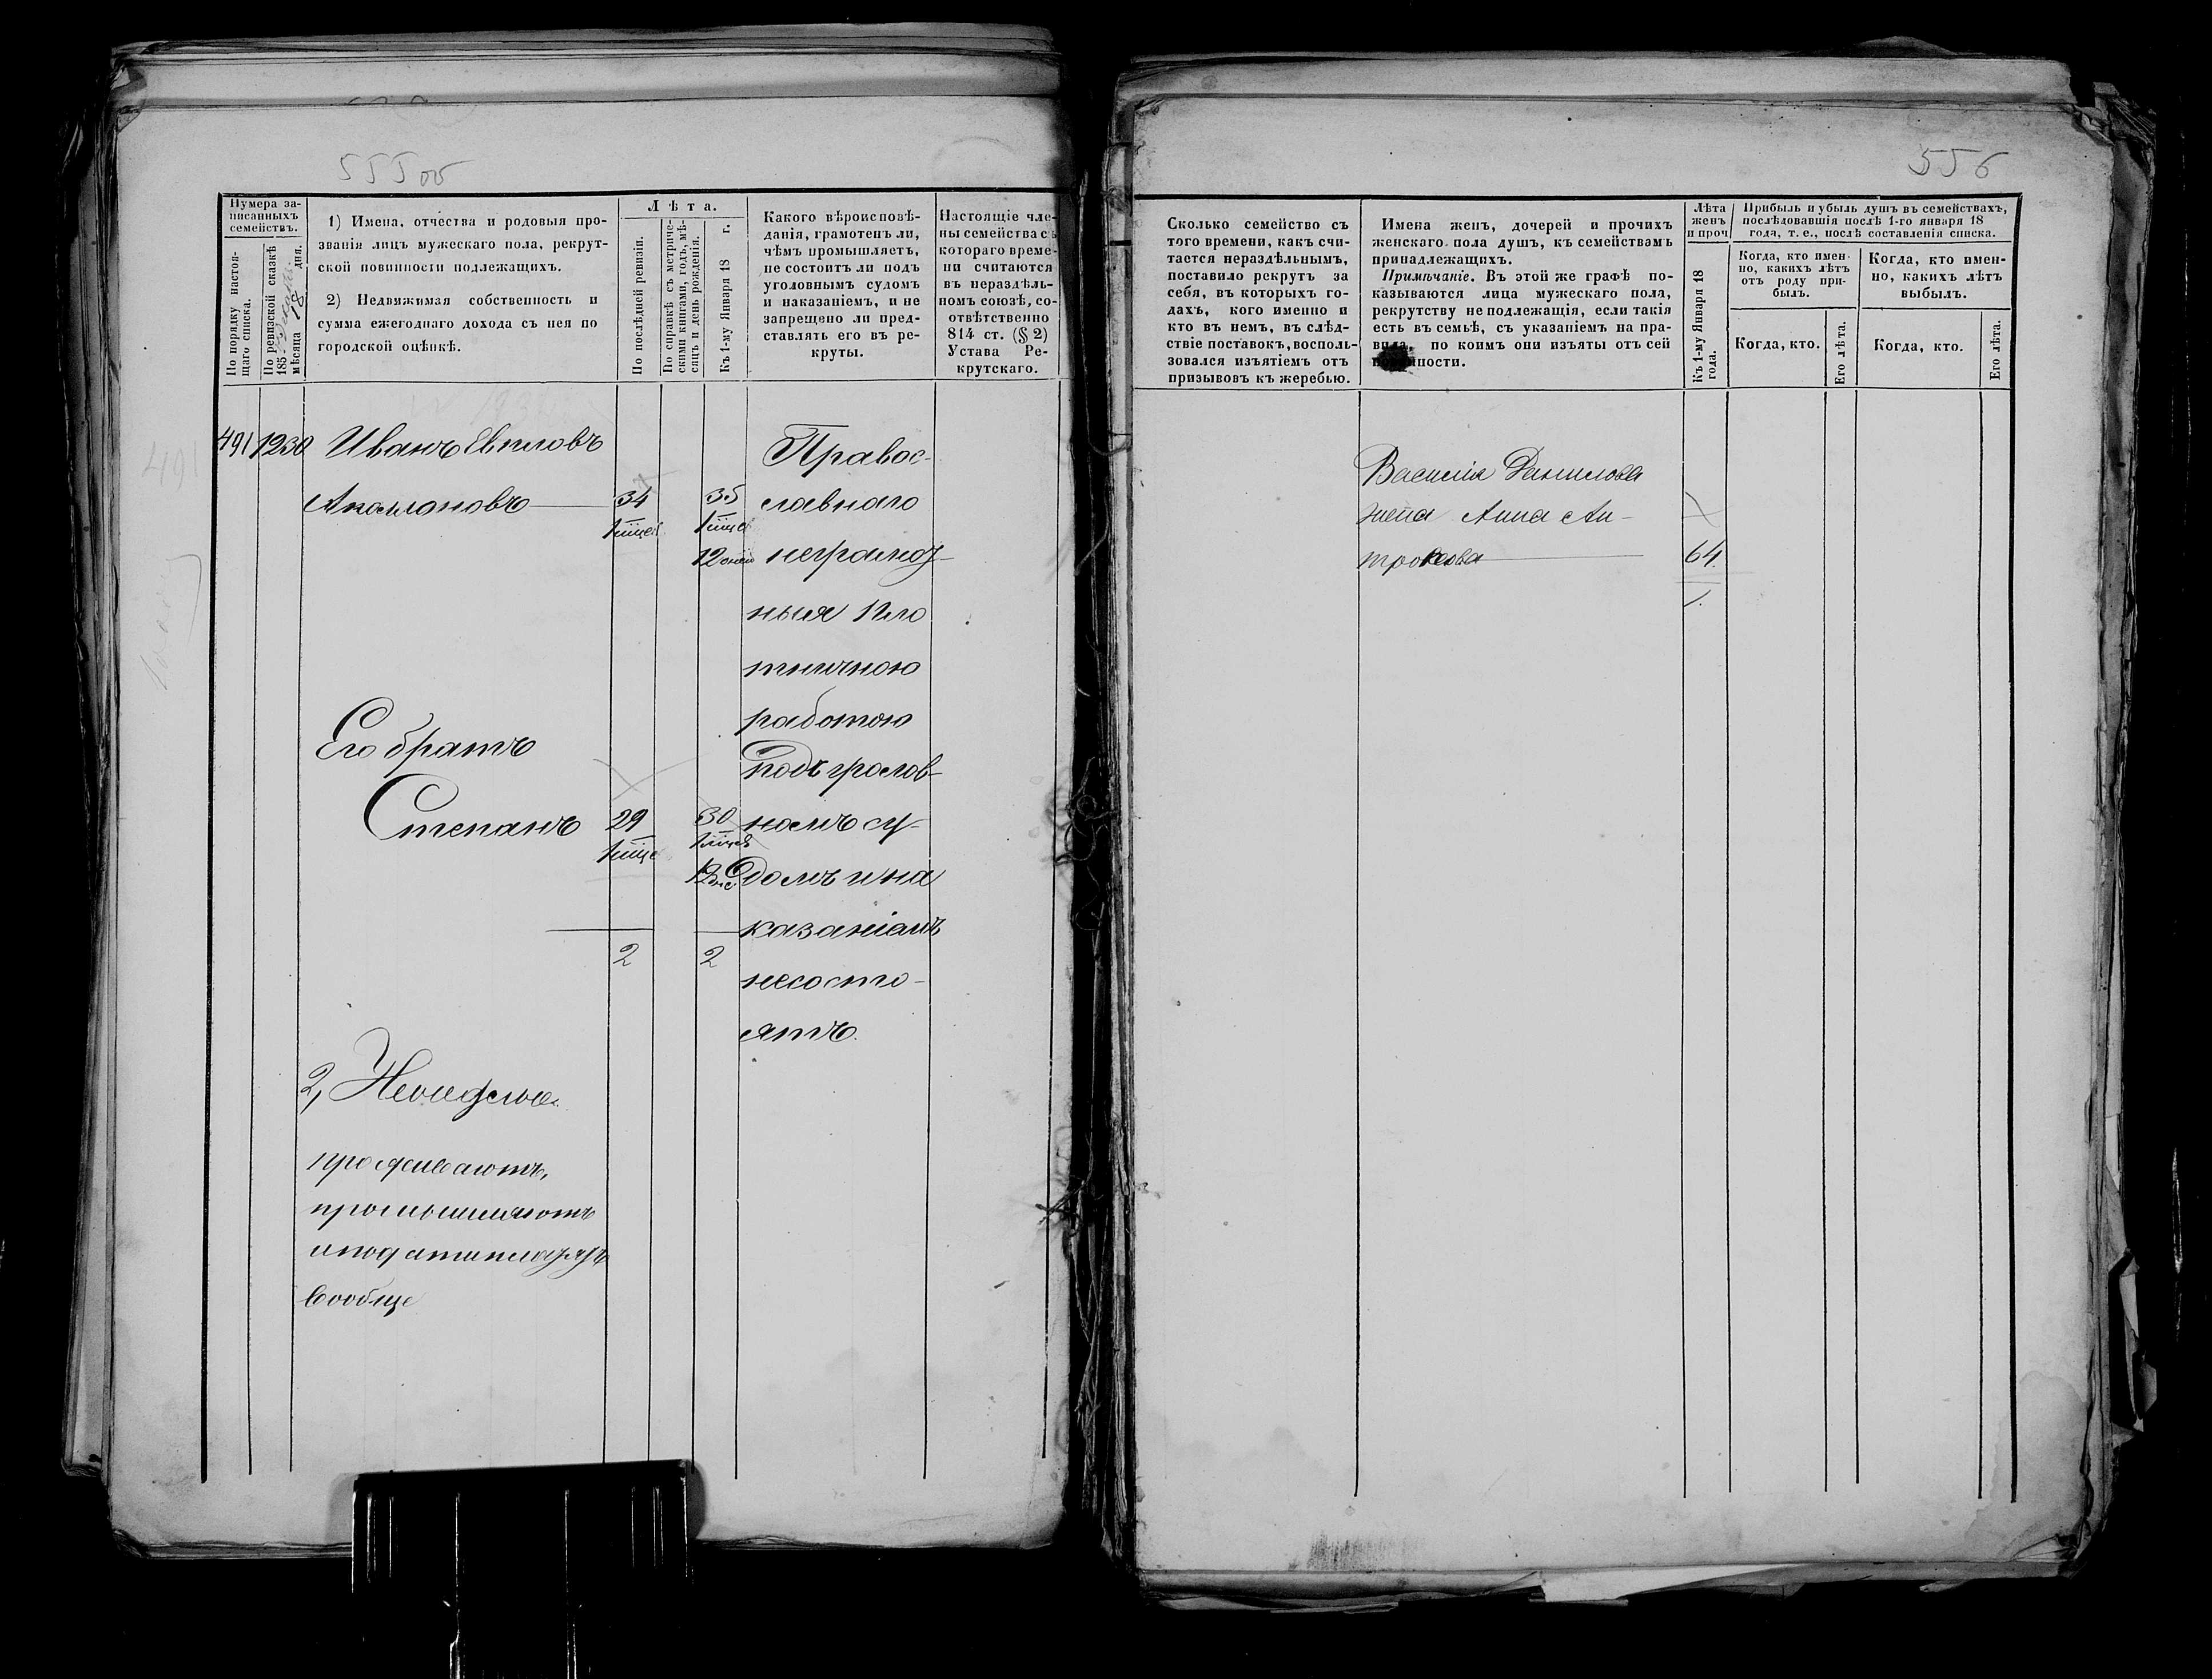 555 об
Нумера за-
писанныхъ
семействъ.
По порядку настоя-
щаго списка.
По ревизской сказкѣ
185
мѣсяца 18 дня.
1) Имена, отчества и родовыя про-
званія лицъ мужескаго пола, рекрут-
ской повинности подлежащихъ.
2) Недвижимая собственность и
сумма ежегоднаго дохода съ нея по
городской оцѣнкѣ.
Лѣта.
По послѣдней ревизіи.
По справкѣ съ метриче-
скими книгами, годъ, мѣ-
сяцъ и день рожденія.
Къ 1-му Января 18 г.
Какого вѣроисповѣ-
данія, грамотенъ ли,
чѣмъ промышляетъ,
не состоитъ ли подъ
уголовнымъ судомъ
и наказаніемъ, и не
запрещено ли пред-
ставлять его въ ре-
круты.
Настоящіе чле-
ны семейства съ
котораго време-
ни считаются
въ нераздѣль-
номъ союзѣ, со-
отвѣтственно
814 ст. (§ 2)
Устава Ре-
крутскаго.
491 1230 Иванъ Евпловъ
34 35
12
Его братъ
Степанъ 29 30
2 2
2, Неимѣютъ
проживаютъ,
промышляютъ
и подати платятъ
вообще
Правос-
лавнаго
неграмот-
ныя Пло
тничною
работою
Подъ уголов-
номъ су-
домъ и на
казаніемъ
несосто-
ятъ.
556
Сколько семейство съ
того времени, какъ счи-
тается нераздѣльнымъ,
поставило рекрутъ за
себя, въ которыхъ го-
дахъ, кого именно и
кто въ немъ, въ слѣд-
ствіе поставокъ, восполь-
зовался изъятіемъ отъ
призывовъ къ жеребью.
Имена женъ, дочерей и прочихъ
женскаго пола душъ, къ семействамъ
принадлежащихъ.
Примѣчаніе. Въ этой же графѣ по-
казываются лица мужескаго пола,
рекрутству не подлежащія, если такія
есть въ семьѣ, съ указаніемъ на пра-
вила, по коимъ они изъяты отъ сей
повинности.
Лѣта
женъ
и проч.
Къ 1-му Января 18
года.
Прибыль и убыль душъ въ семействахъ,
послѣдовавшія послѣ 1-го января 18
года, т. е., послѣ составленія списка.
Когда, кто имен-
но, какихъ лѣтъ
отъ роду при-
былъ.
Когда, кто имен-
но, какихъ лѣтъ
выбылъ.
Когда, кто.
Его лѣта.
Когда, кто.
Его лѣта.
Василія Данилова
жена Анна Ан-
64.
1.